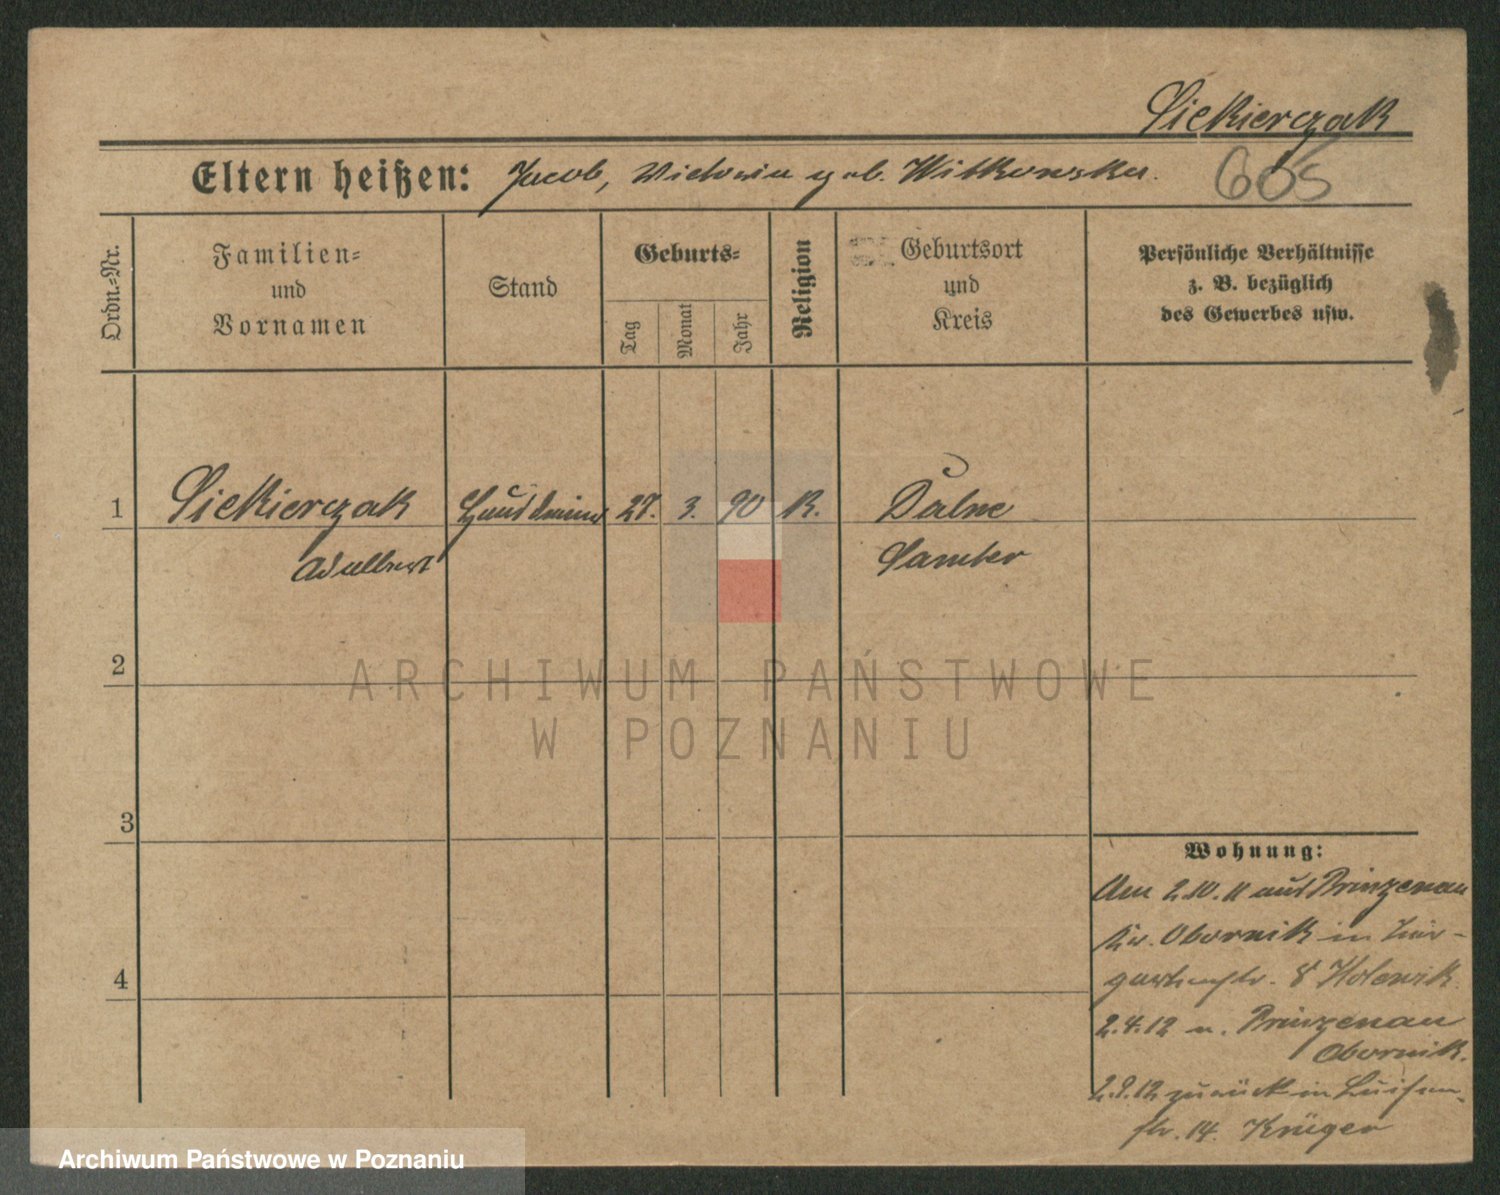 Siekierczak
Eltern heißen: Jacob, Victoria geb. Witkowska.
605
Ordn.-Nr.
Familien-
und
Vornamen
Stand
Geburts-
Tag
Monat
Jahr
Religion
Geburtsort
und
Kreis
Persönliche Verhältnisse
z. B. bezüglich
des Gewerbes usw.
1 Siekierczak 27. 3. 90 K. Dalne
Adalbert Samter
2
ARCHIWUM PAŃSTWOWE
W POZNANIU
3
Wohnung:
Am 2.10.11 aus Prinzenau
Kr. Obornik in Tier-
gartenstr. 8
4
2.4.12 n. Prinzenau
Obornik.
2.9.12 zurück in Luisen-
str. 14. Krüger
Archiwum Państwowe w Poznaniu